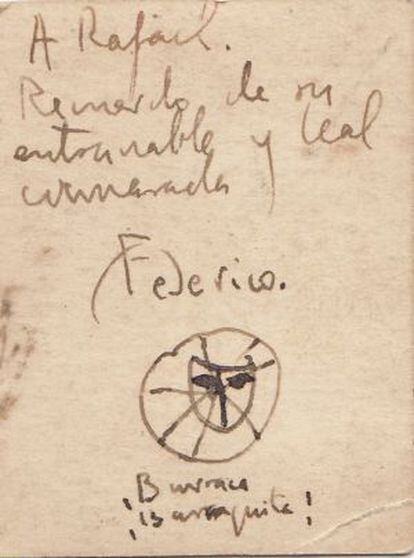 A Rafael.
Recuerdo de su
entrañable y leal
camarada
Federico.
¡Barraca
¡Barraquita!